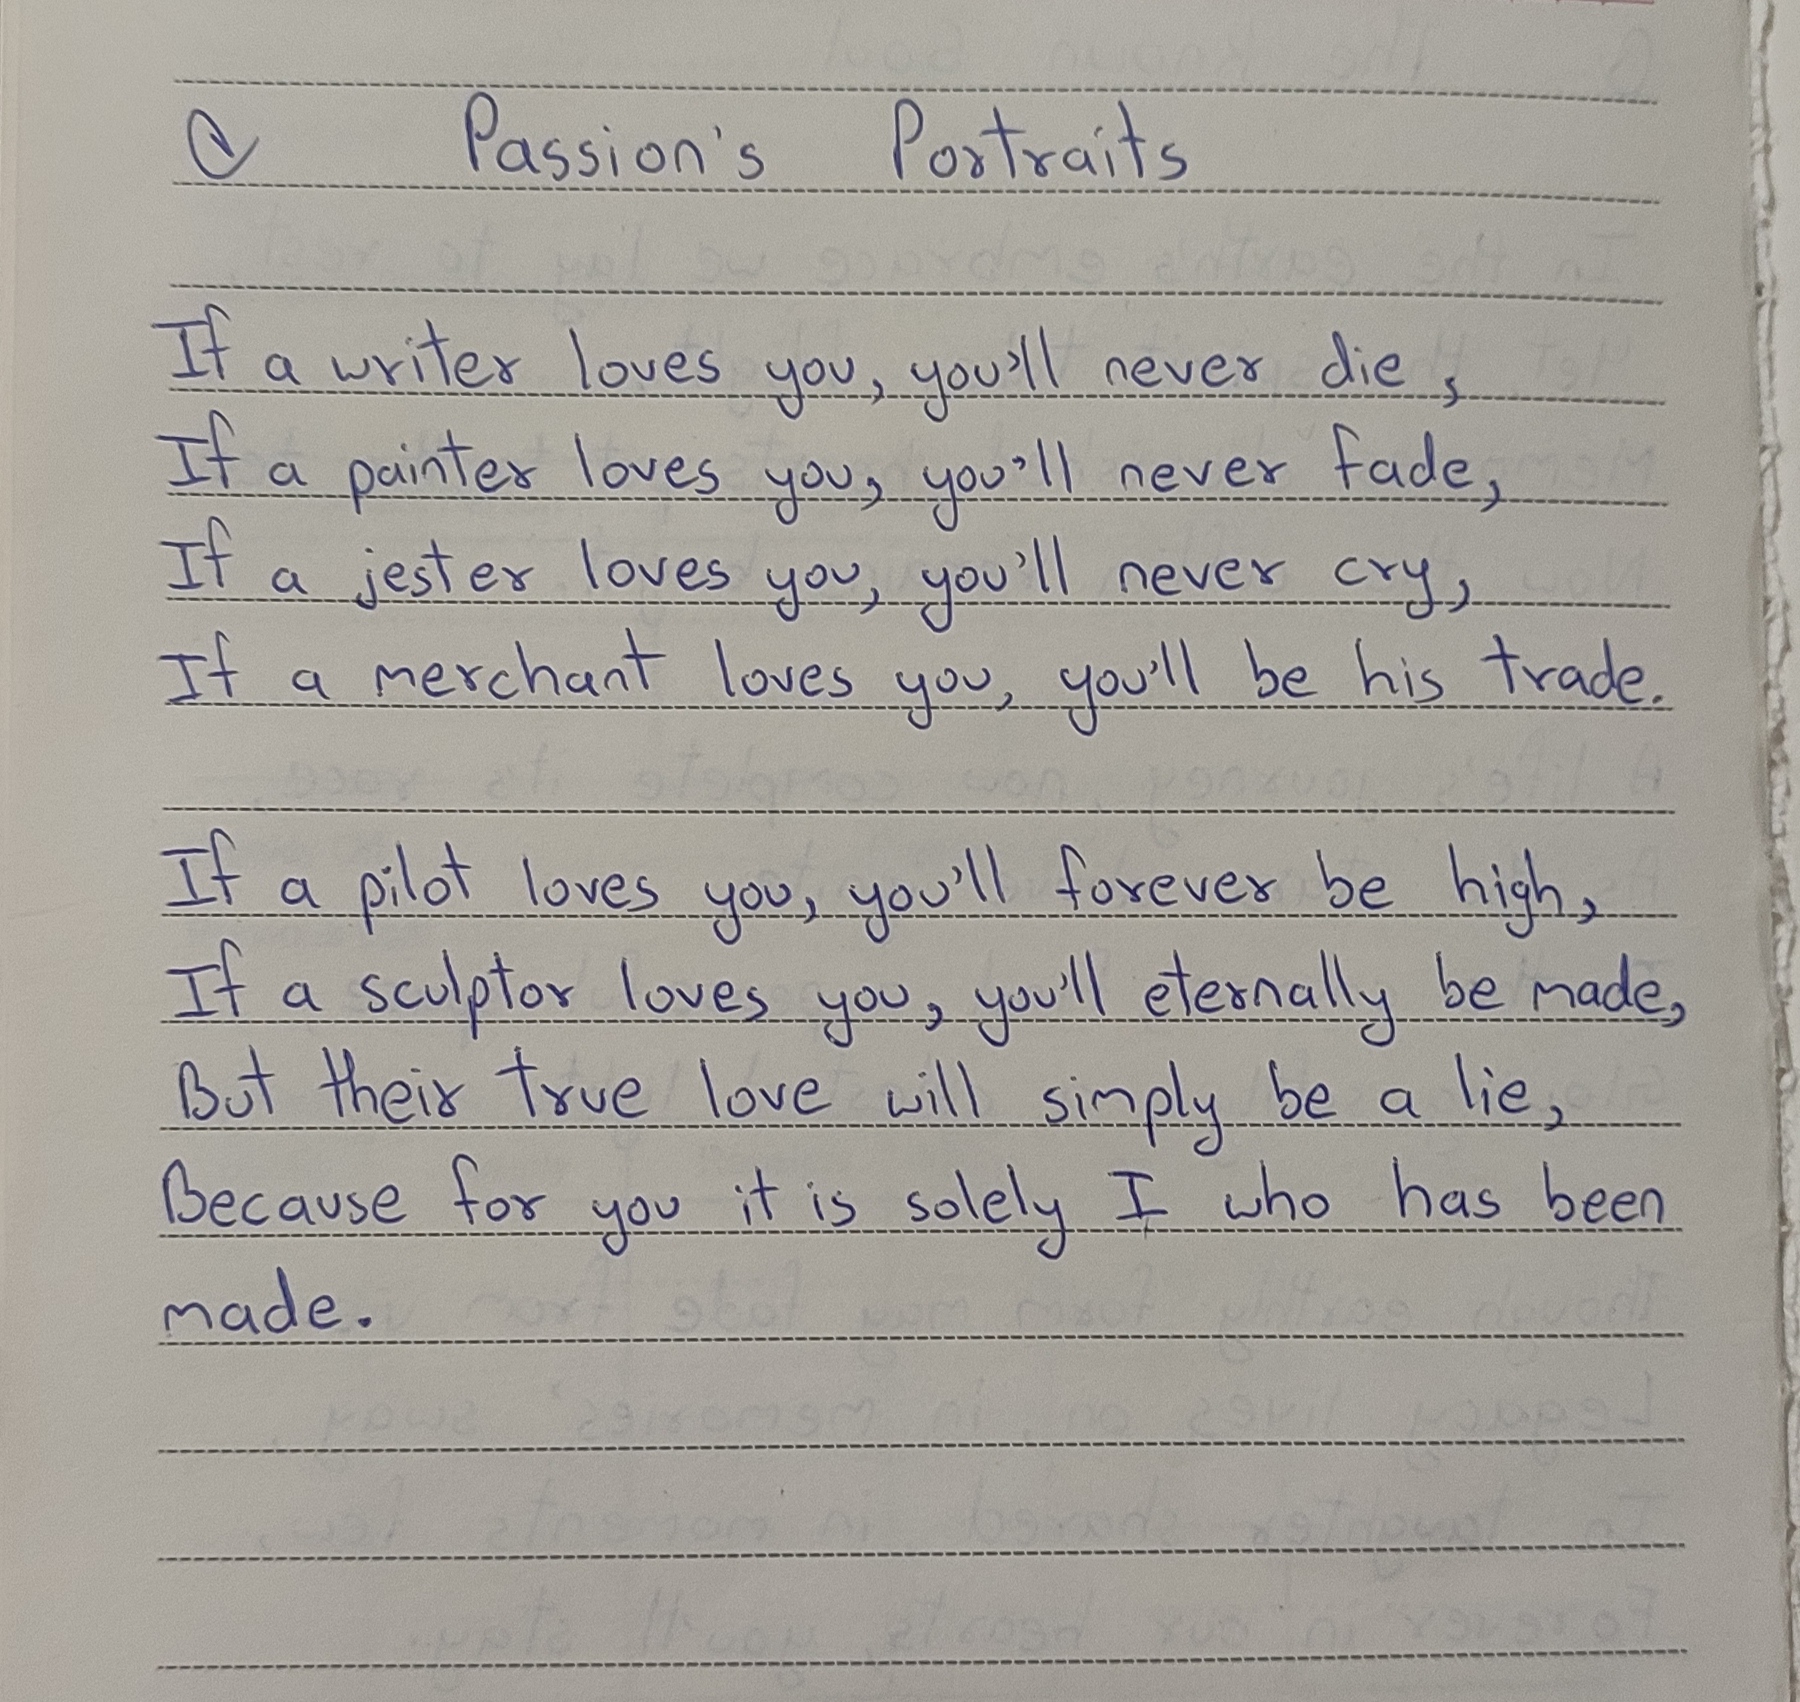 Passion's Portraits
If a writer loves you, you'll never die,
If a painter loves you, you'll never fade,
If a jester loves you, you'll never cry,
If a merchant loves you, you'll be his trade.
If a pilot loves you, you'll forever be high,
If a sculptor loves you, you'll eternally be made,
But their true love will simply be a lie,
Because for you it is solely I who has been
made.